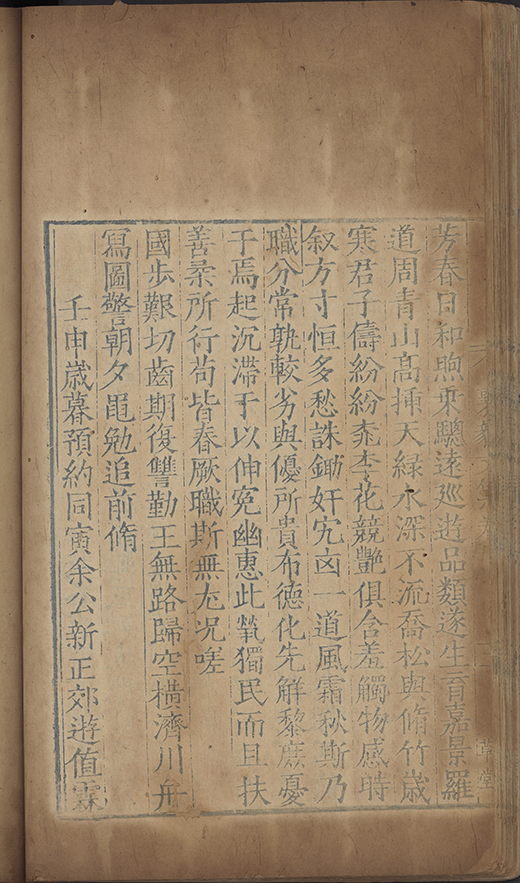 芳春日和煦乘驄遠廵遊品類遂生育嘉景羅
道周青山高揷天緑水深不流喬松與脩竹歳
寒君子儔紛紛桃李花競艷俱含羞觸物感時
叙方寸恒多愁誅鋤奸宄凶一道風霜秋斯乃
職分常孰較劣與優所貴布德化先解黎庶憂
于焉起沉滯于以伸冤幽惠此㷀獨民而且扶
善柔所行苟皆春厥職斯無尤况嗟
國步艱切齒期復讐勤王無路歸空橫濟川舟
寫圖警朝夕黽勉追前脩
壬申歳暮預約同寅余公新正郊遊值霖